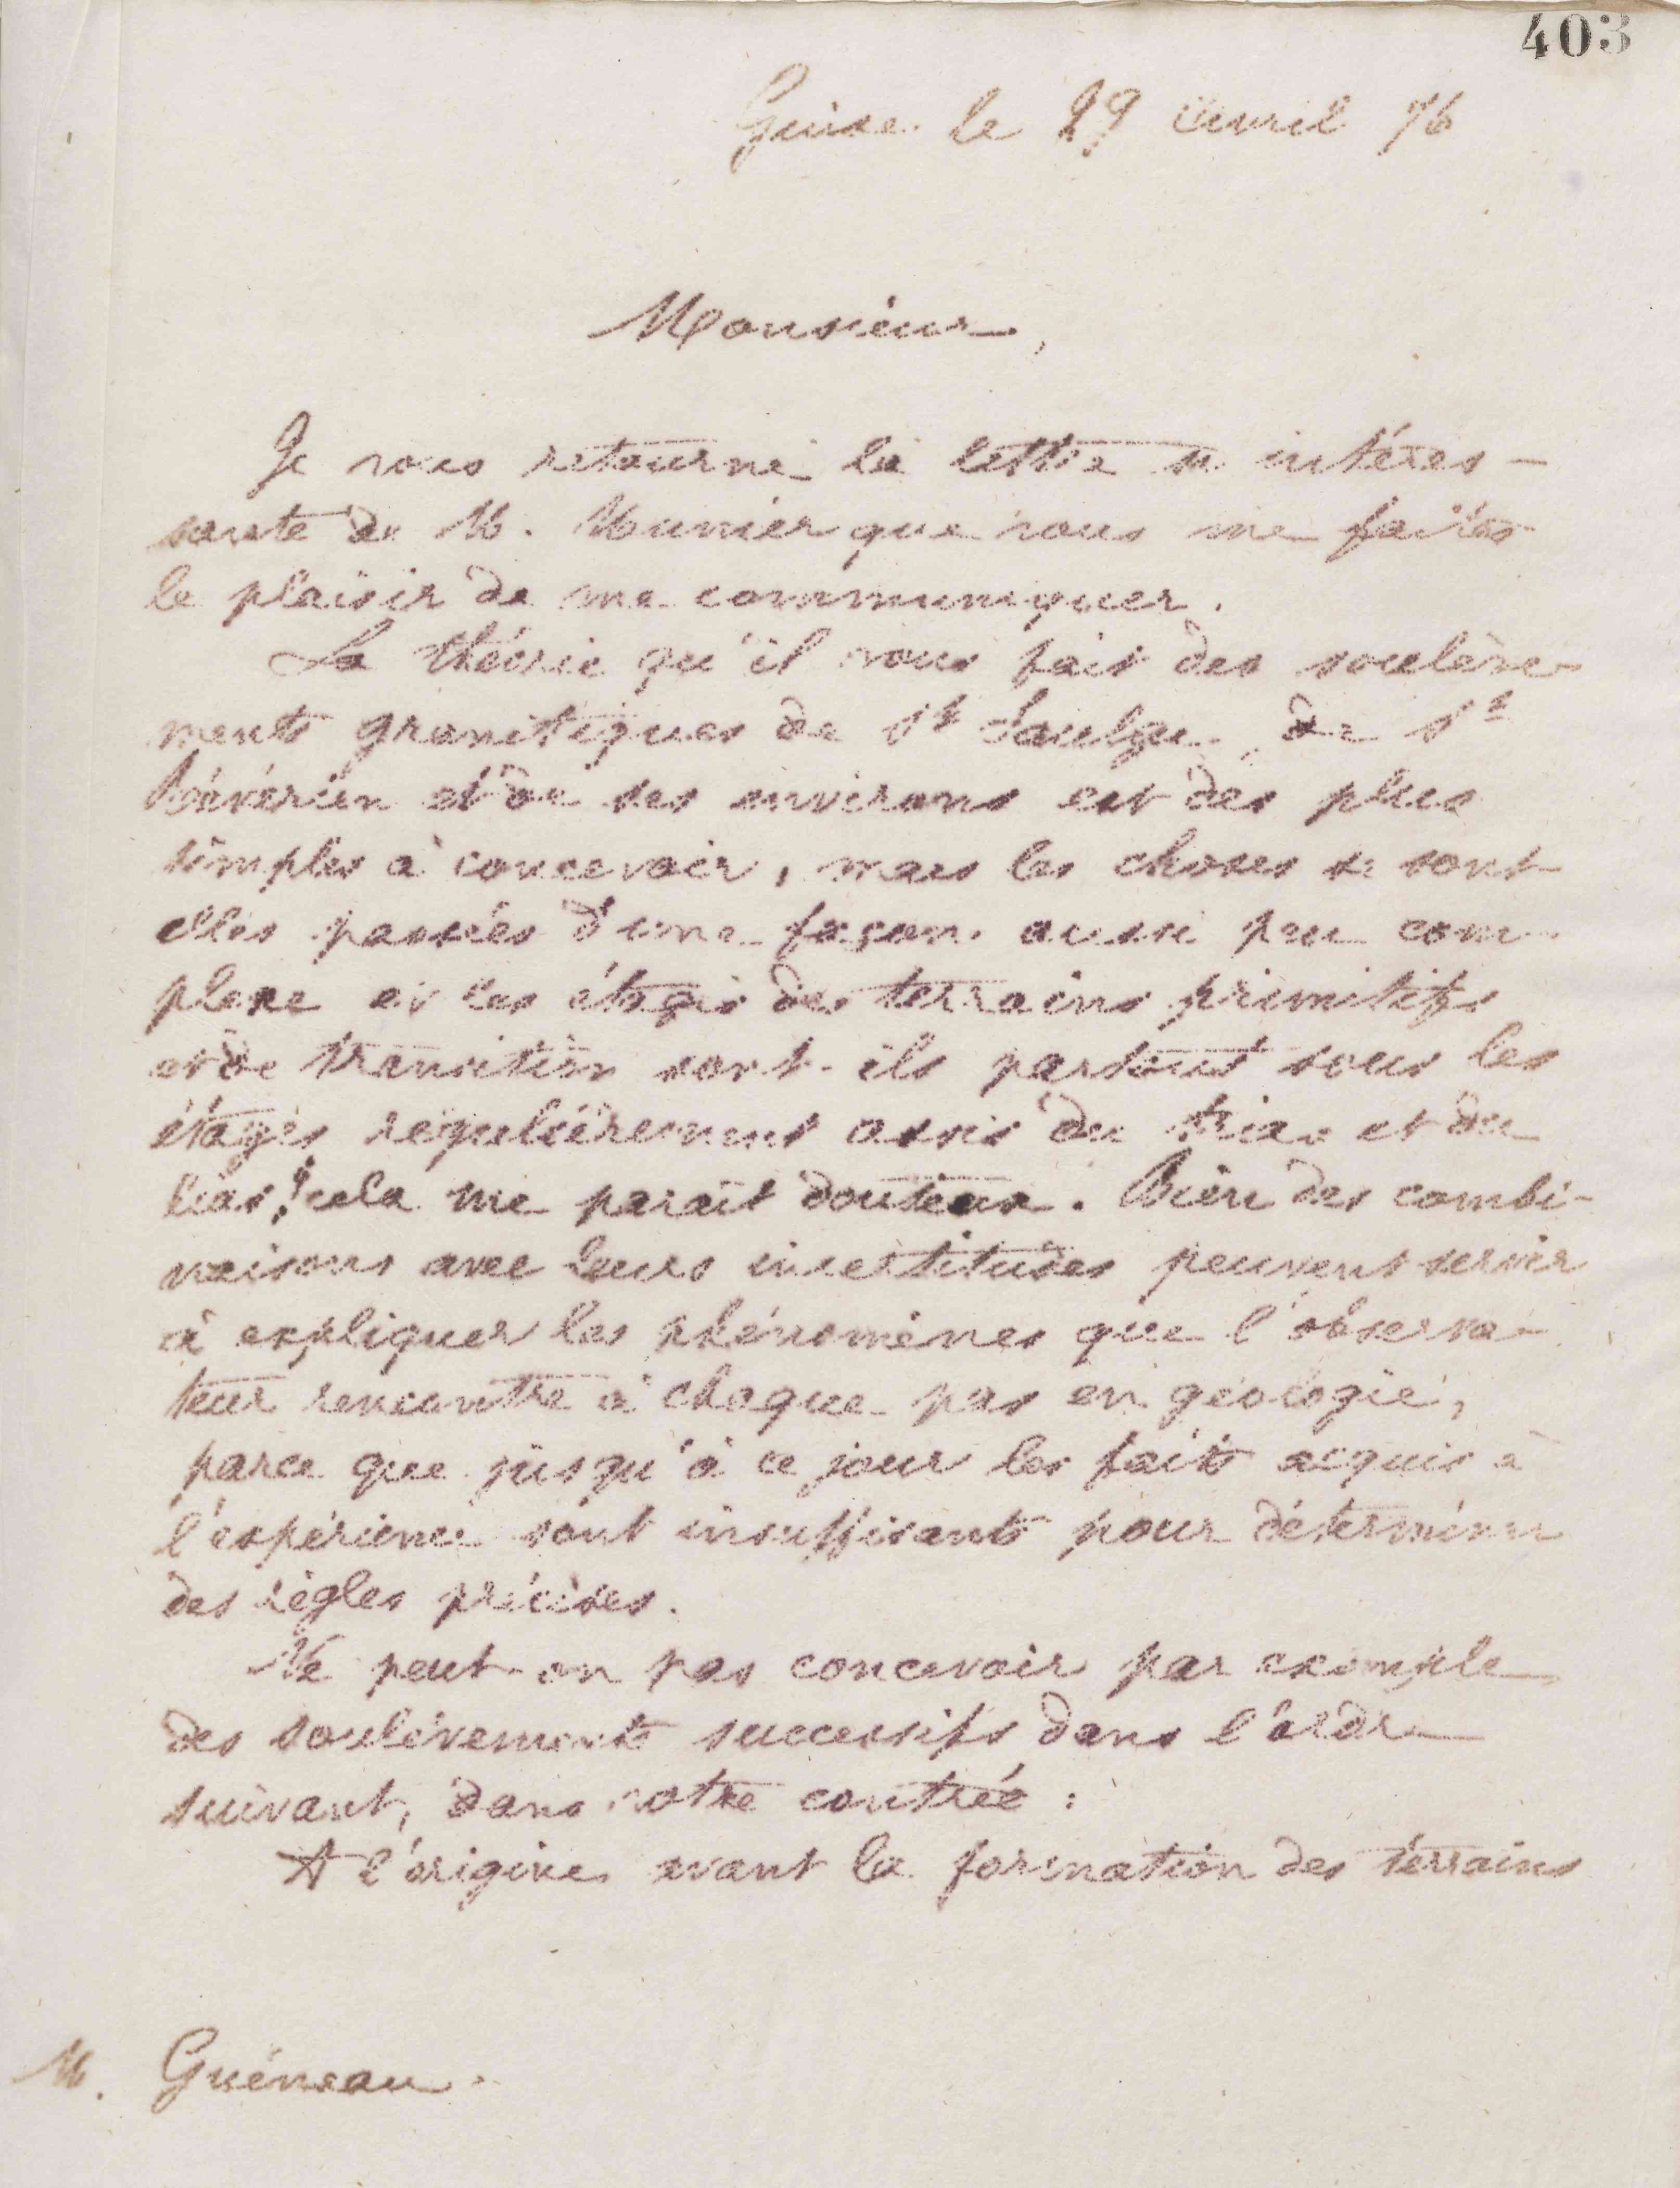 403
Guise le 29 avril 76
Monsieur,
Je vous retourne la lettre si intéres-
sante de M. Munier que vous me faites
le plaisir de me communiquer.
La théorie qu'il vous fait des soulève-
ments granitiques de St Saulge, de St
Révérien et de ses environs est des plus
simples à concevoir, mais les choses se sont
elles passées d'une façon aussi peu com-
plexe et les étages des terrains primitifs
et de transition sont-ils partout sous les
étages régulièrement assis du trias et du
lias? cela me paraît douteux. Bien des combi-
naisons avec leurs incertitudes peuvent servir
à expliquer les phénomènes que l'observa-
teur rencontre à chaque pas en géologie,
parce que jusqu'à ce jour les faits acquis à
l'expérience sont insuffisants pour déterminer
des règles précises.
Ne peut-on pas concevoir par exemple
des soulèvements successifs dans l'ordre
suivant, dans votre contrée :
A l'origine avant la formation des terrains
M. Guéneau.